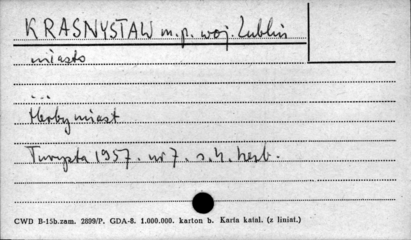 KRASNYSTAW m.p. woj. Lublin
miasto
...
Herby miast
Turysta 1957. nr 7. s.4. herb.
CWD B-15b.zam. 2899/P. GDA-8. 1.000.000. karton b. Karta katal. (z liniat.)